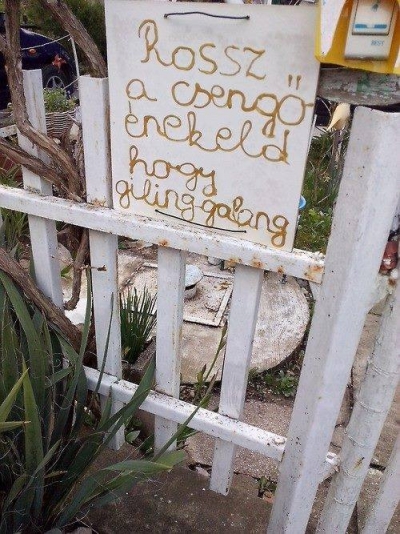 Rossz
a csengő
énekeld
hogy
gilinggalang